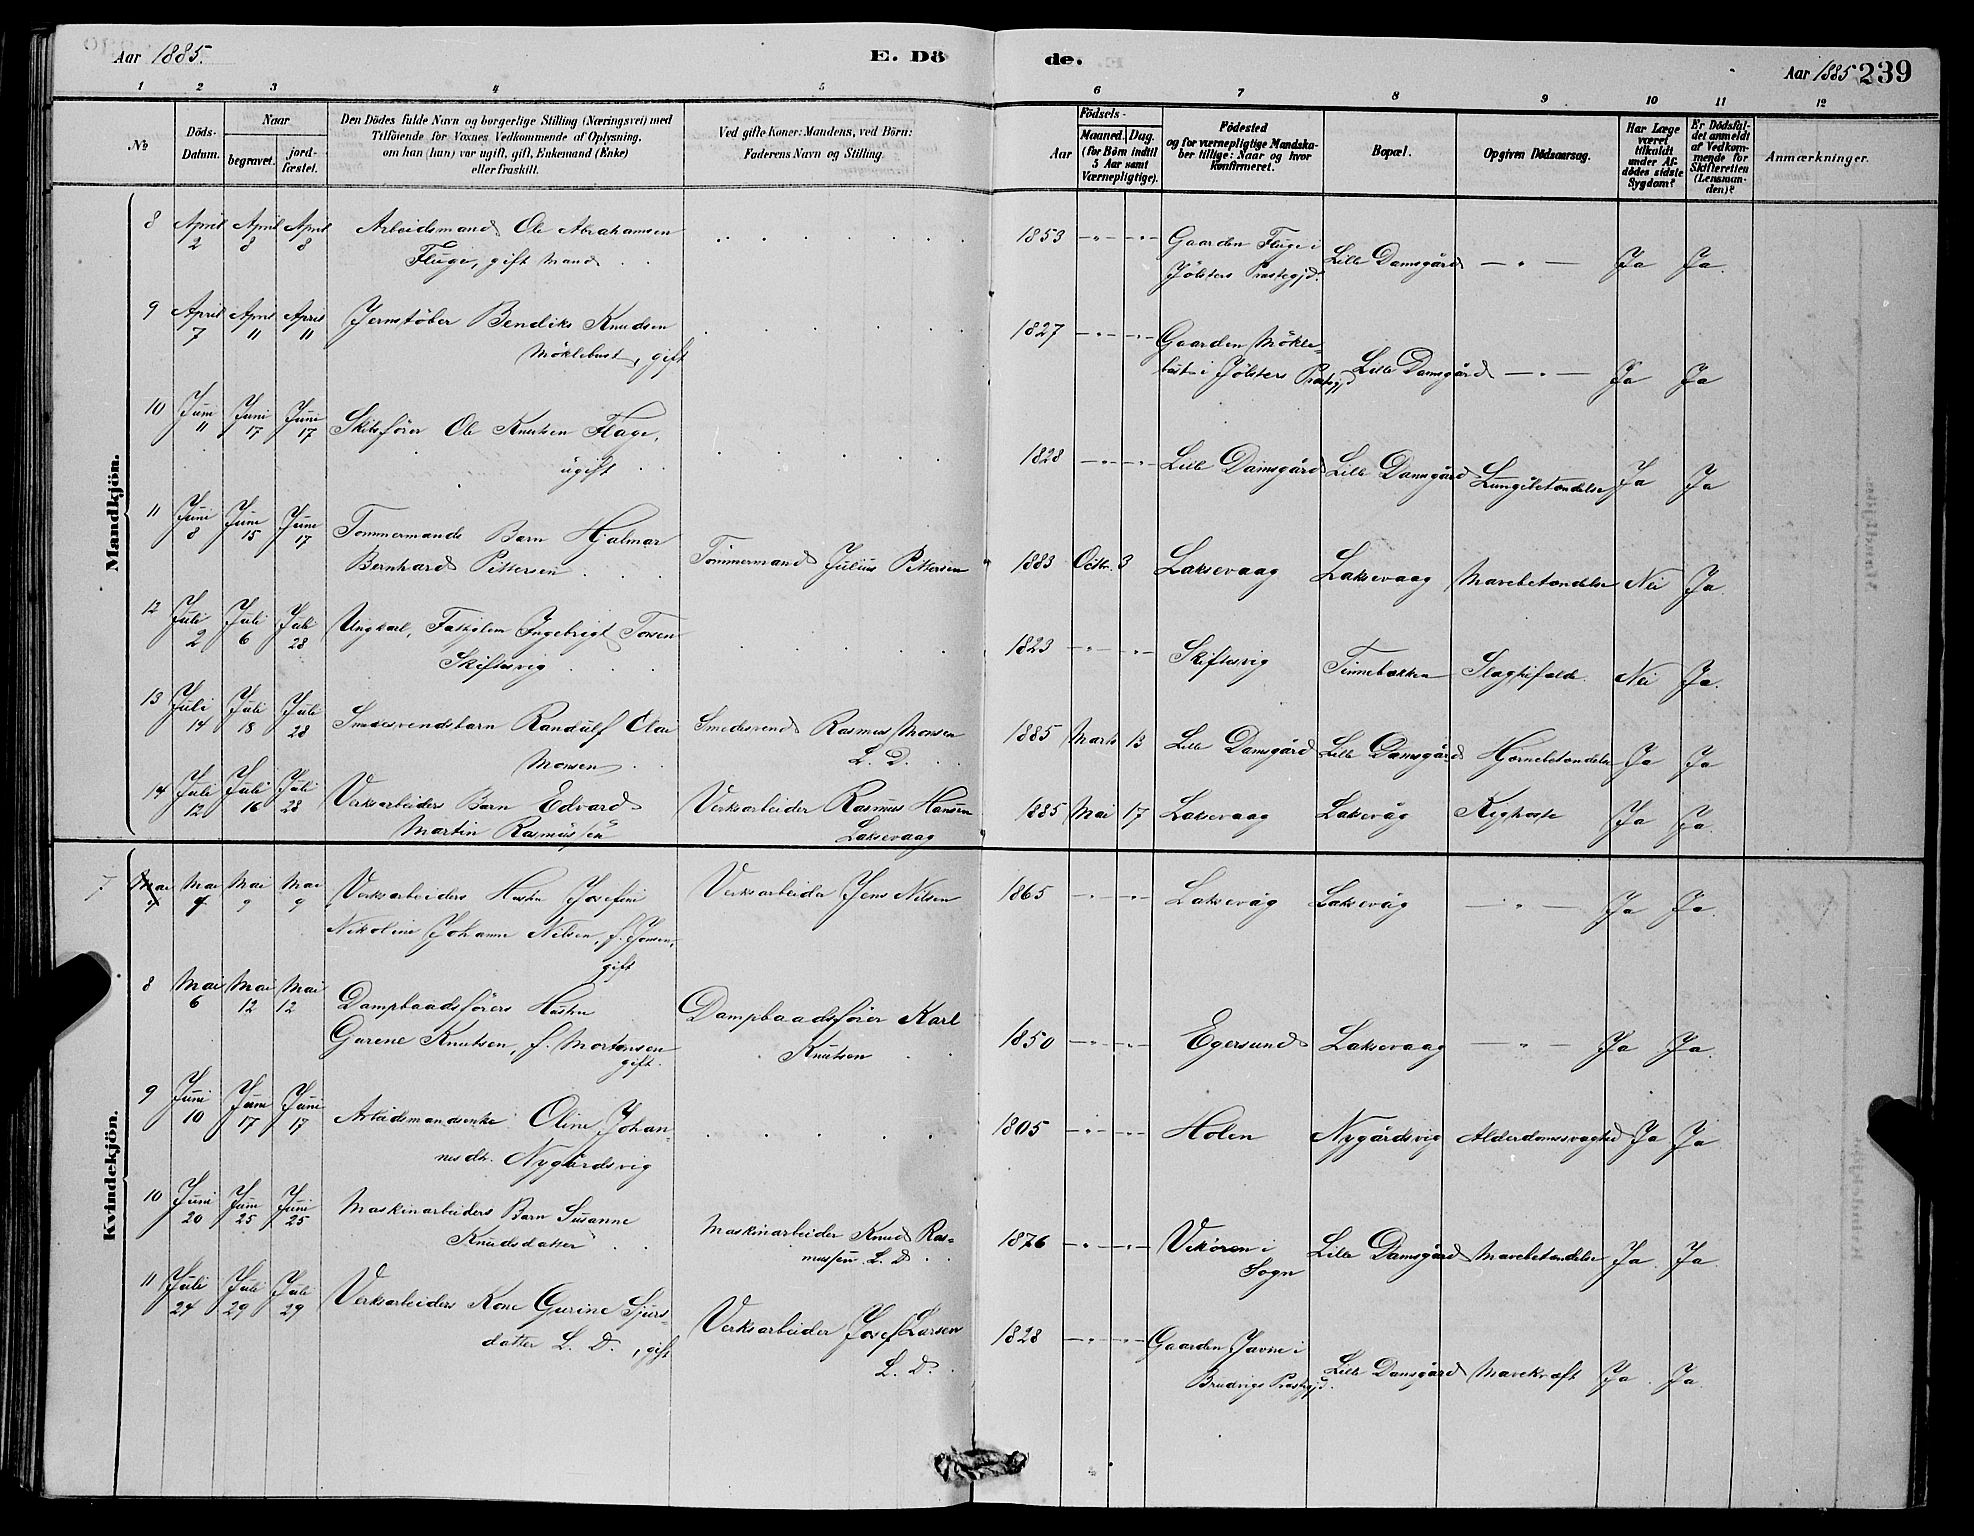 Aar 1885.
E. Dö
de.
Aar 1885
239
1 2 3 4 5 6 7 8 9 10 11 12
No
Döds-Datum.
Naar
begravet.
jord-fæstet.
Den Dödes fulde Navn og borgerlige Stilling (Næringsvei) med
Tilföiende for Voxnes Vedkommende af Oplysning,
om han (hun) var ugift, gift, Enkemand (Enke)
eller fraskilt.
Ved gifte Koner: Mandens, ved Börn:
Faderens Navn og Stilling.
Födsels-
Aar
Maaned. Dag.
(for Börn indtil
5 Aar samt
Værnepligtige).
Födested
og for værnepligtige Mandska-
ber tillige: Naar og hvor
konfirmeret.
Bopæl.
Opgiven Dödsaarsag.
Har Læge
været
tilkaldt
under Af-
dödes sidste
Sygdom?
Er Dödsfal-
det anmeldt
af Vedkom-
mende for
Skifteretten
(Lensman-
den)?
Anmærkninger.
Mandkjön.
8 April 2 April 8 April 8 Arbeidsmand Ole Abrahamsen
Fluge, gift Mand
1853 Gaarden Fluge i
Jölsters Præstegjd. Lille Damsgård Ja Ja.
9 April 7 April 11 April 11 Jernstöber Bendiks Knudsen
Möklebust, gift
1827 Gaarden Mökle-
bust i Jölsters Præstgjd Lille Damsgård Ja Ja
10 Juni 11 Juni 17 Juni 17 Skibsförer Ole Knutsen Flage,
ugift
1828 Lille Damsgård Lille Damsgård Lungebetændelse Ja Ja
11 Juni 8 Juni 15 Juni 17 Tømmermands Barn Hjalmar
Bernhard Pettersen Tömmermand Julius Pettersen
1883 Octbr. 3 Laksevaag Laksevaag Mavebetændelse Nei Ja.
12 Juli 2 Juli 6 Juli 28 Ungkarl, Fatiglem Ingebrigt Torsen
Skiftesvig
1823 Skiftesvig Tennebækken Slagtilfælde. Nei Ja.
13 Juli 14 Juli 18 Juli 28 Smedesvendsbarn Randulf Elai
Monsen Smedesvend Rasmus Monsen
L. D.
1885 Marts 13 Lille Damsgård Lille Damsgård Hjernebetændelse Ja Ja
14 Juli 12 Juli 16 Juli 28 Verksarbeiders Barn Edvard
Martin Rasmussen Verksarbeider Rasmus Hansen
Laksevaag
1885 Mai 17 Laksevaag Laksevåg Kighoste Ja Ja.
Kvindekjön.
7 Mai 4 Mai 9 Mai 9 Verksarbeiders Hustru Josefine
Nikoline Johanne Nilsen, f. Jonsen,
gift Verksarbeider Jens Nilsen
1865 Laksevåg Laksevåg Ja Ja.
8 Mai 6 Mai 12 Mai 12 Dampbaadsförers Hustru
Gurene Knutsen, f. Mortensen
gift. Dampbaadsförer Karl
Knutsen
1850 Egersund Laksevaag Ja Ja.
9 Juni 10 Juni 17 Juni 17 Arbeidsmandsenke Oline Johan-
nesdr. Nygårdsvig
1805 Holen Nygårdsvig Alderdomssvaghed Ja Ja
10 Juni 20 Juni 25 Juni 25 Maskinarbeiders Barn Susanne
Knudsdatter Maskinarbeider Knud Ras-
mussen L. D.
1876 Vikören i
Sogn Lille Damsgård Mavebetændelse Ja. Ja.
11 Juli 24 Juli 29 Juli 29 Verksarbeiders Kone Gurine Sjurs-
datter L. D., gift Verksarbeider Josef Larsen
L. D.
1828 Gaarden i
Præstgjd. Lille Damsgård Mavekræft Ja. Ja.